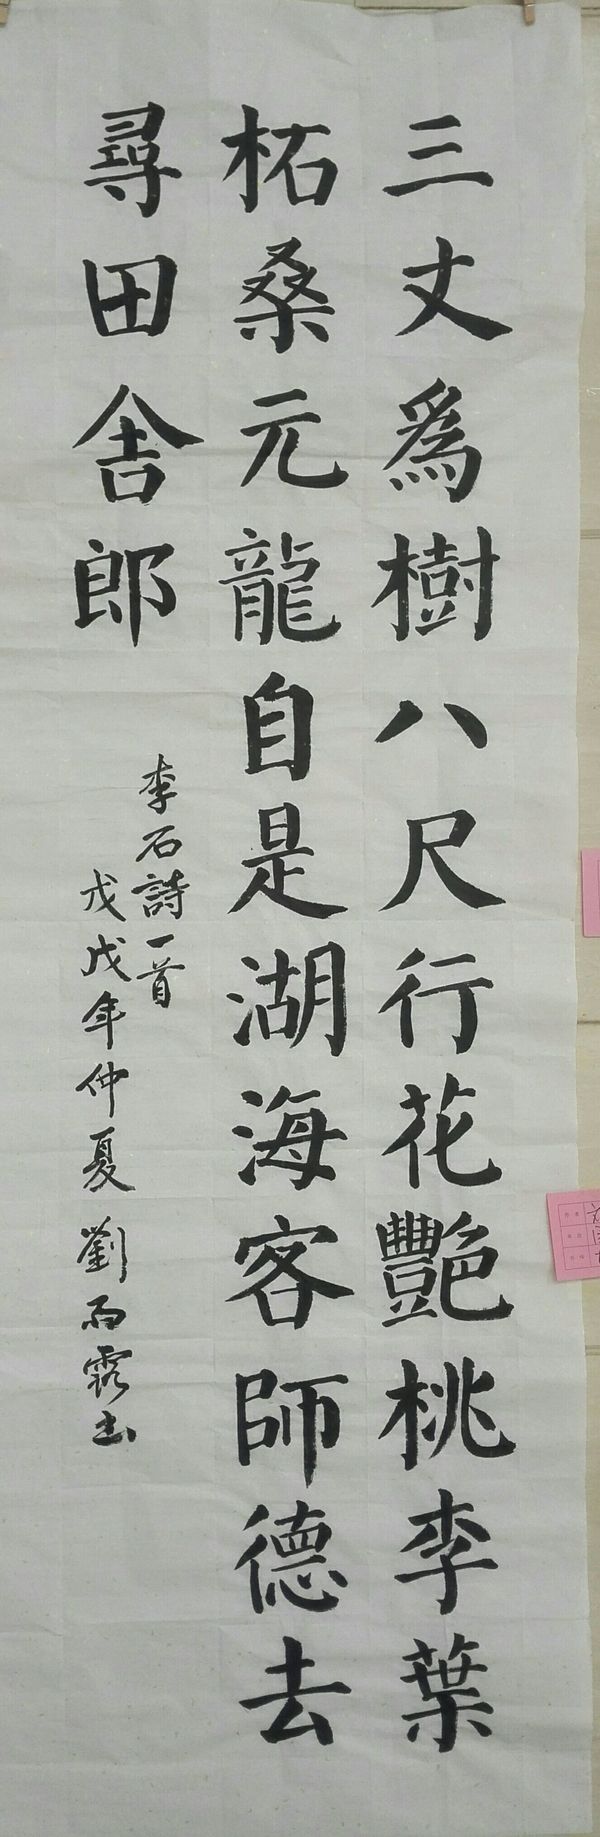 三丈爲樹八尺行花艷桃李葉
柘桑元龍自是湖海客師德去
尋田舍郎
李石詩一首
戊戌年仲夏劉雨露書